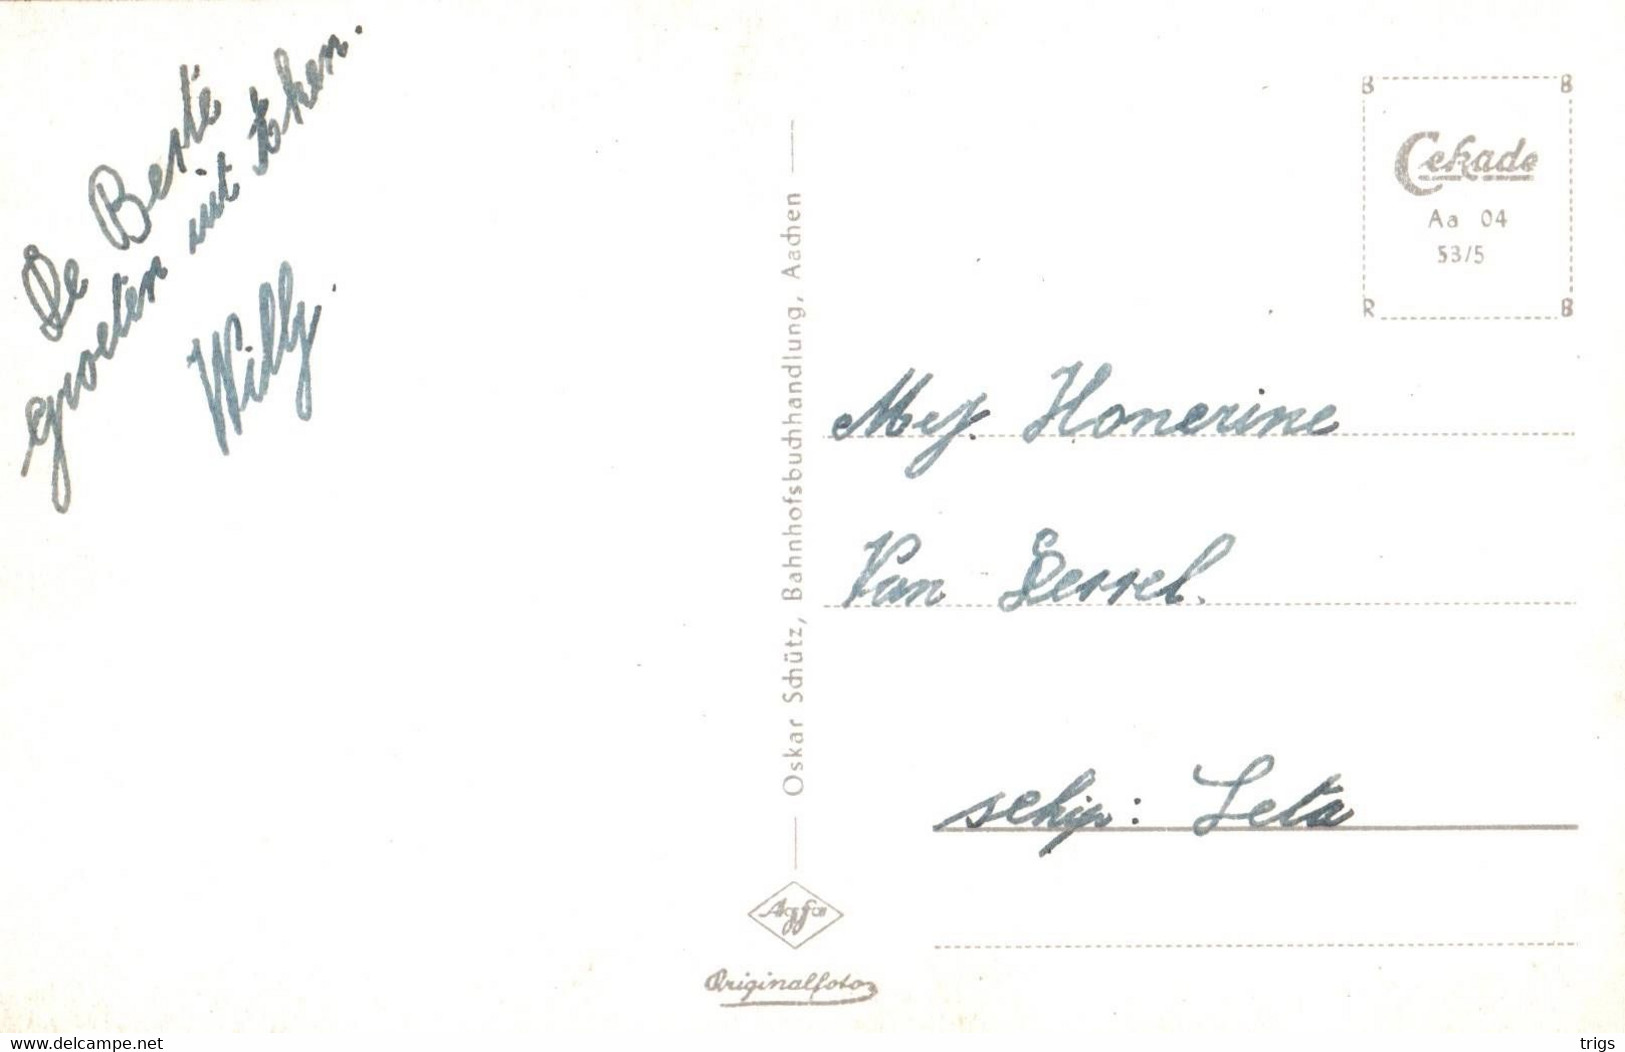 De Beste
groeten uit Aken.
Willy.
Oskar Schütz, Bahnhofsbuchhandlung, Aachen
Agfa
Originalfoto
B B
Cekade
Aa 04
53/5
R B
Mej. Honerine
Van Dessel.
schip: Leta
www.delcampe.net
trigs